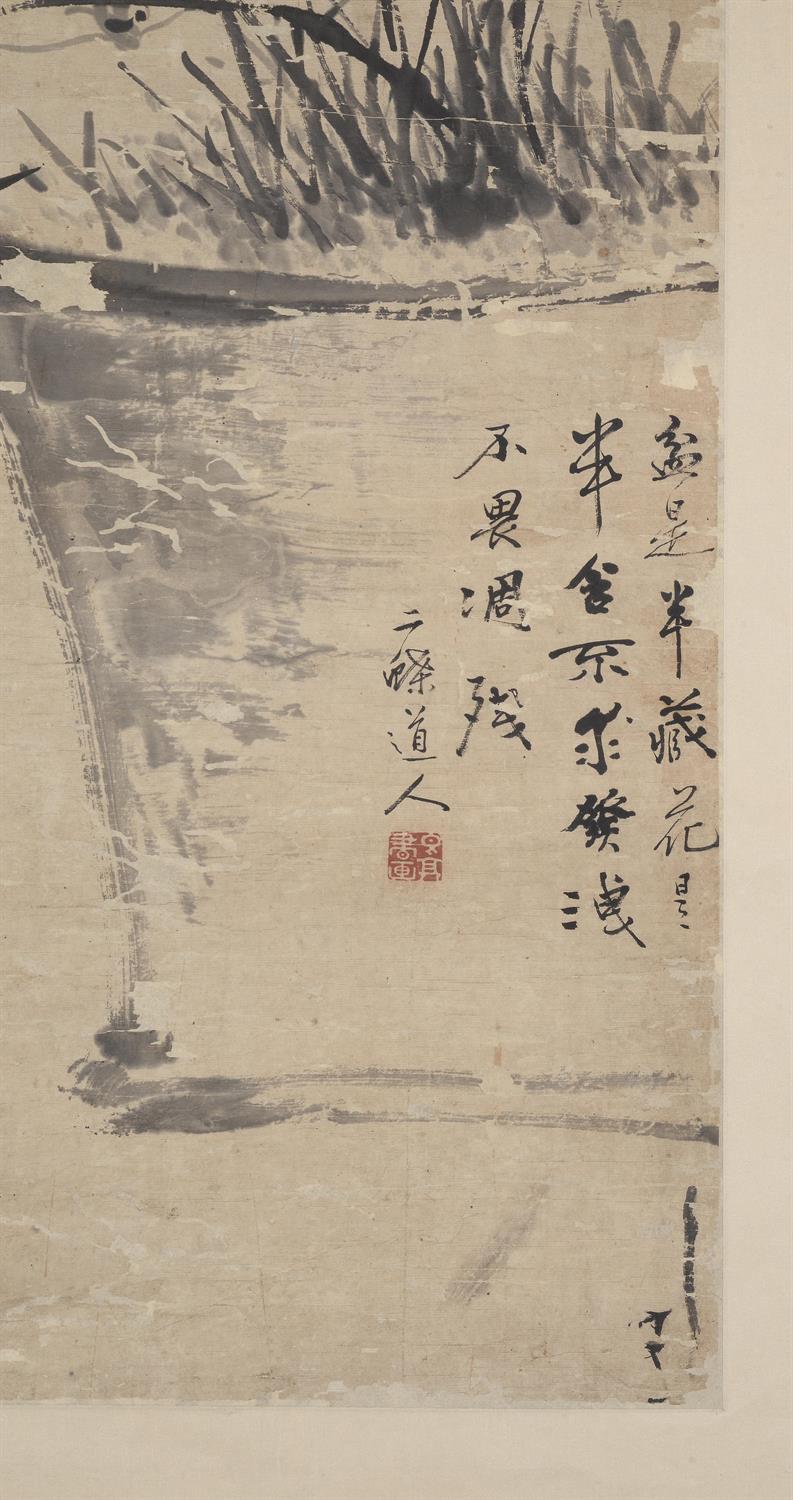 盆是半藏花是
半含不求發洩
不畏凋殘
二蝶道人